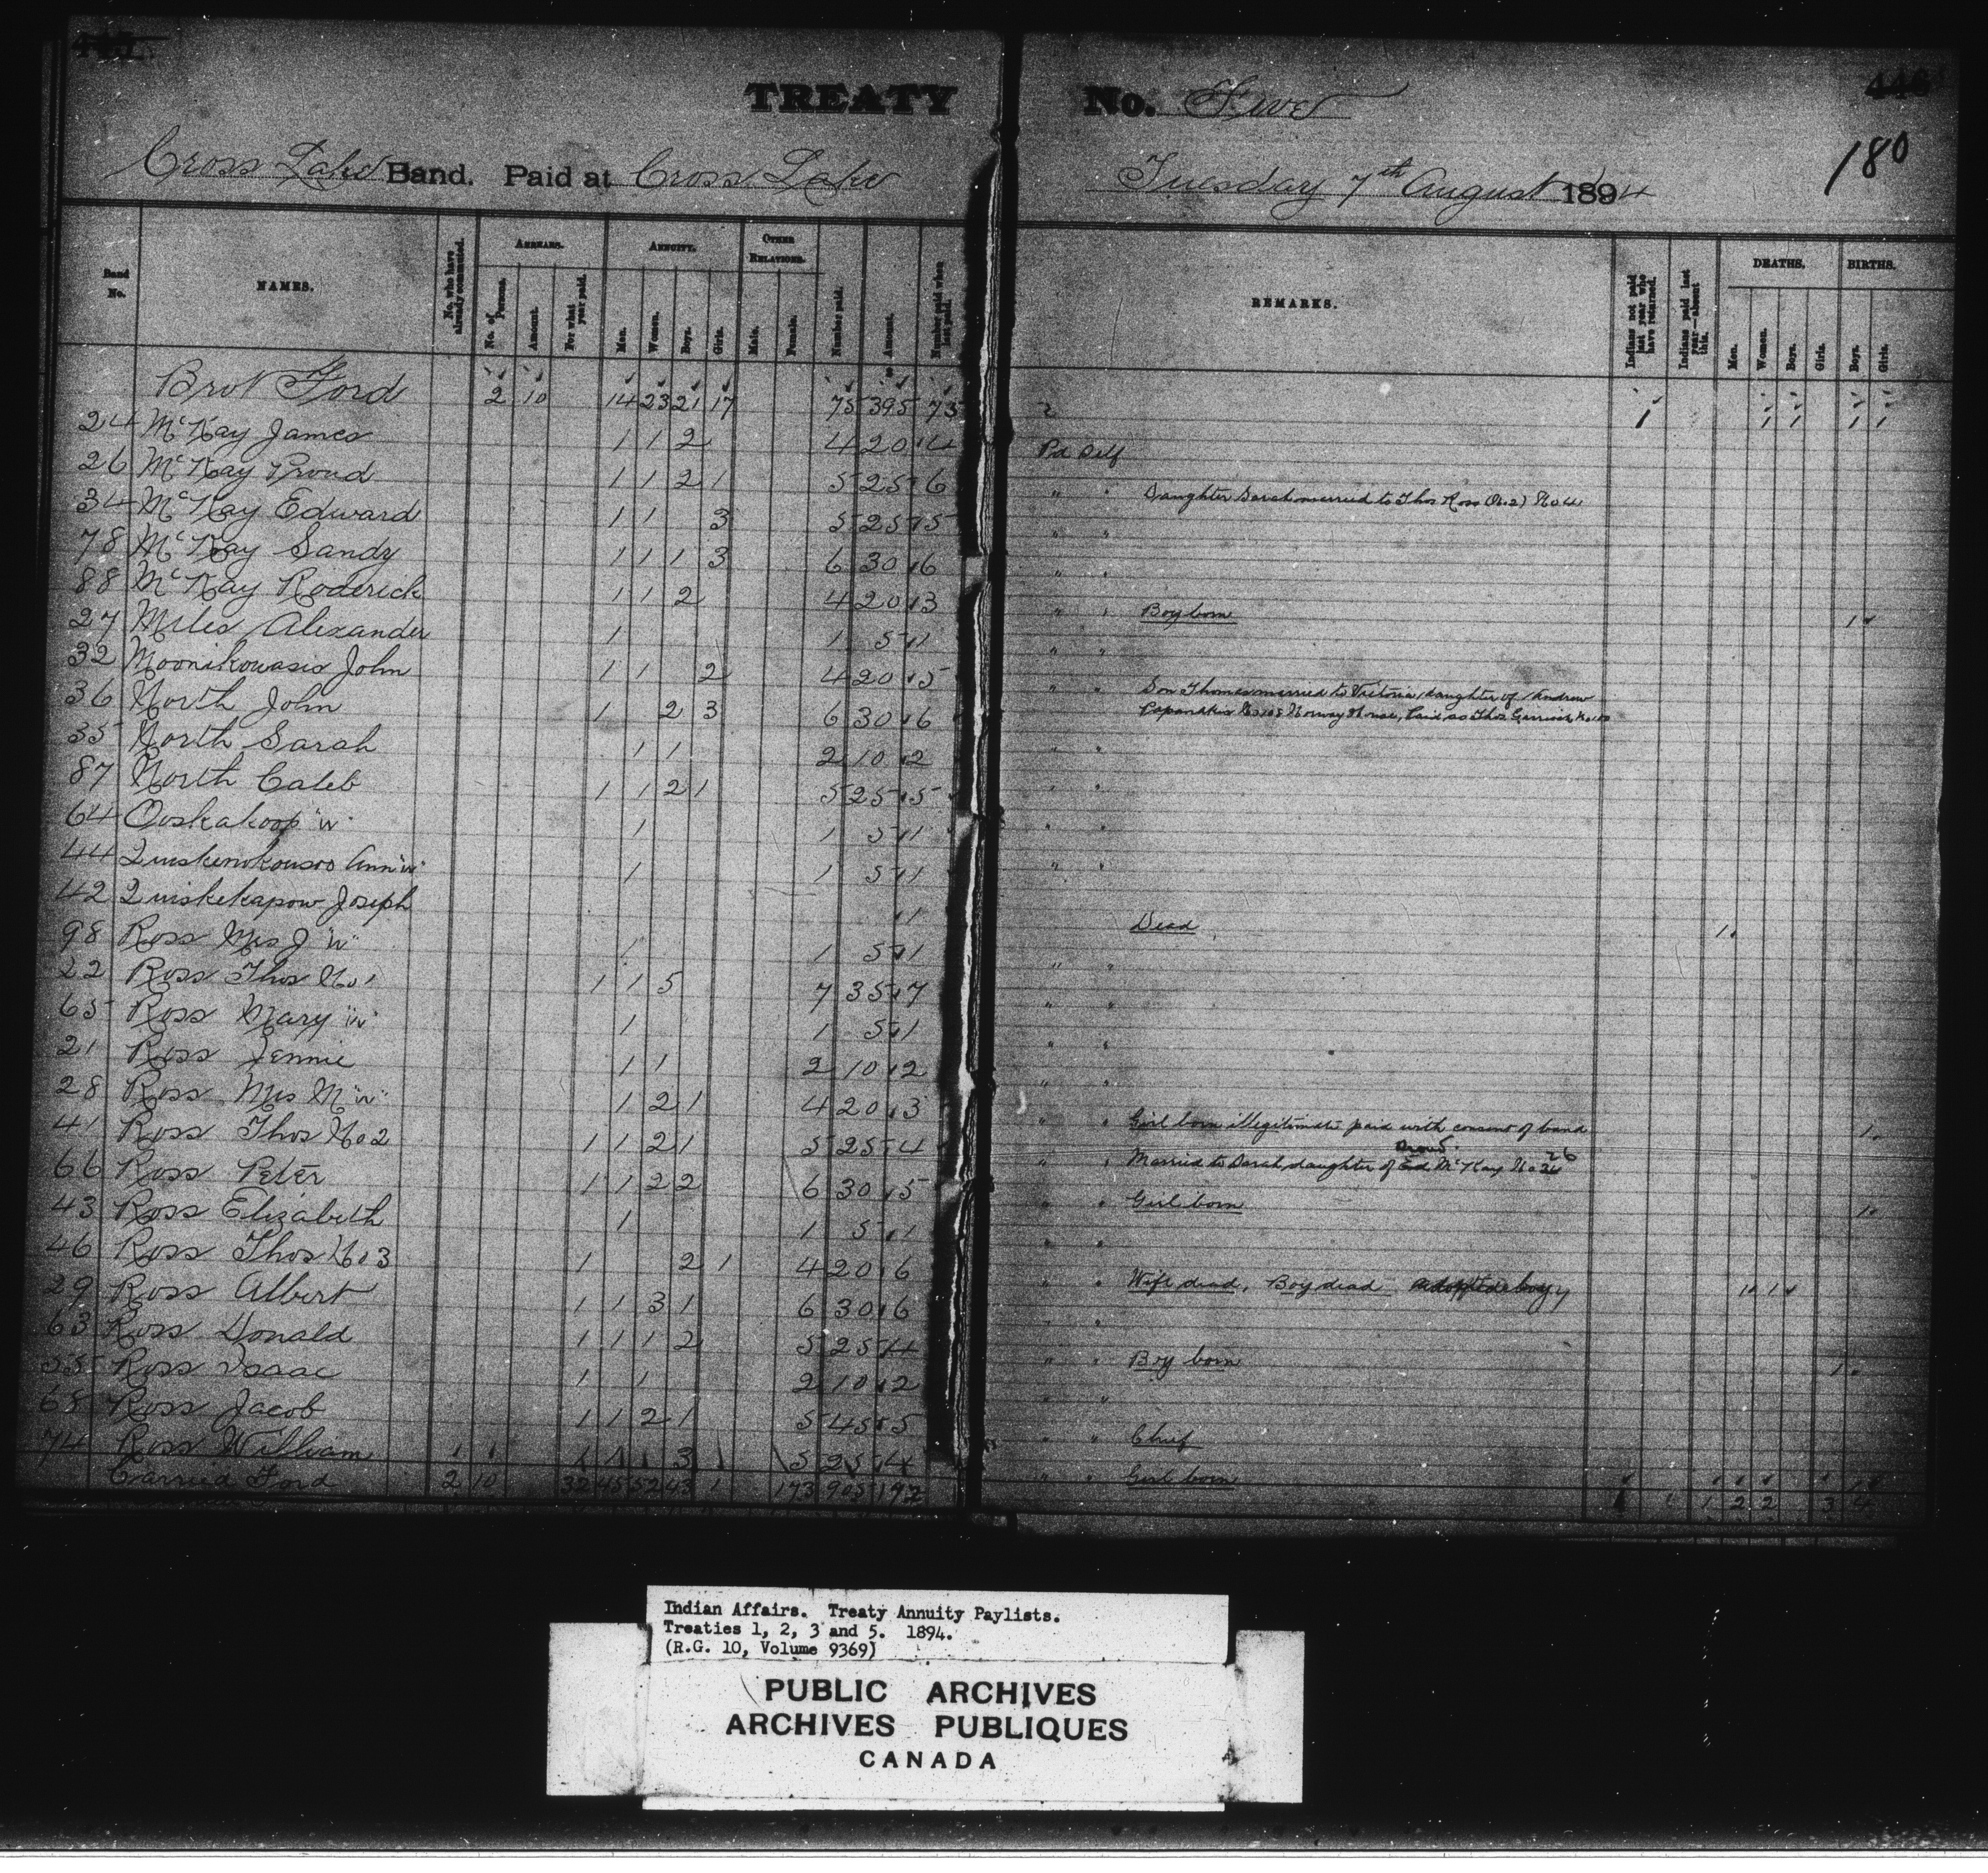 TREATY No. Five
446
180
Cross Lake Band. Paid at Cross Lake Tuesday 7th August 1894
Band No. NAMES. No. who have already commuted. ARREARS. No. of Persons. Amount. For what year paid. ANNUITY. Men. Women. Boys. Girls. OTHER RELATIONS. Male. Female. Number paid. Amount. Number paid when last paid. REMARKS. Indians not paid last year who have returned. Indians paid last year—absent this. DEATHS. Men. Women. Boys. Girls. BIRTHS. Boys. Girls.
Brot Ford 2 10 14 23 21 17 75 395 73 1 1 1 1 1
24 McKay James 1 1 2 4 20 4 Pd Self
26 McKay Proud 1 1 2 1 5 25 6 " " Daughter Sarah married to Thos Ross (No.2) No 41
34 McKay Edward 1 1 3 5 25 5 " "
78 McKay Sandy 1 1 1 3 6 30 6 " "
88 McKay Roderick 1 1 2 4 20 3 " " Boy born 1
27 Miles Alexander 1 1 5 1 " "
32 Moonikowasis John 1 1 2 4 20 5 " " Son Thomas married to Victoria daughter of Andrew
Papanakis No 108 Norway House, Paid as Thos Garrick
36 North John 1 2 3 6 30 6
35 North Sarah 1 1 2 10 2 " "
87 North Caleb 1 1 2 1 5 25 5 " "
64 Ooskakoop "W" 1 1 5 1 " "
44 Ann "W" 1 1 5 1 " "
42 Quiskekapow Joseph 1 Dead 1
98 Ross Mrs J "W" 1 1 5 1 " "
22 Ross Thos No 1 1 1 5 7 35 7 " "
65 Ross Mary "W" 1 1 5 1 " "
21 Ross Jennie 1 1 2 10 2 " "
28 Ross Mrs M "W" 1 2 1 4 20 3 " " Girl born illegitimate paid with consent of band 1
41 Ross Thos No 2 1 1 2 1 5 25 4 " " Married to Sarah daughter of Proud McKay No 26
66 Ross Peter 1 1 2 2 6 30 5 " " Girl born 1
43 Ross Elizabeth 1 1 5 1 " "
46 Ross Thos No 3 1 2 1 4 20 6 " " Wife dead, Boy dead 1 1
29 Ross Albert 1 1 3 1 6 30 6 "
63 Ross Donald 1 1 1 2 5 25 4 " " Boy born 1
55 Ross Isaac 1 1 2 10 2 " "
68 Ross Jacob 1 1 2 1 5 45 5 " " Chief
74 Ross William 1 1 3 5 25 4 " " Girl born 1
Carried Ford 2 10 32 45 52 43 1 173 905 172 1 1 2 2 3 4
Indian Affairs. Treaty Annuity Paylists.
Treaties 1, 2, 3 and 5. 1894.
(R.G. 10, Volume 9369)
PUBLIC ARCHIVES
ARCHIVES PUBLIQUES
CANADA